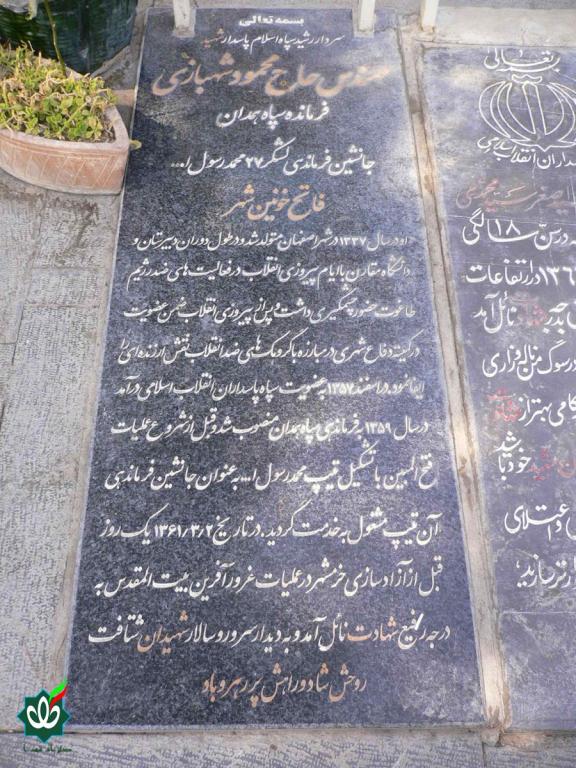 بسمه تعالی
سردار رشید سپاه اسلام پاسدار شهید
مهندس حاج محمود شهبازی
فرمانده سپاه همدان
جانشین فرماندهی لشکر ۲۷ محمد رسول ا...
فاتح خونین شهر
او در سال ۱۳۳۷ در شهر اصفهان متولد شد و در طول دوران دبیرستان و
دانشگاه مقارن با ایام پیروزی انقلاب در فعالیت های ضد رژیم
طاغوت حضور چشمگیری داشت و پس از پیروزی انقلاب ضمن عضویت
در کمیته دفاع شهری در مبارزه با گروهک های ضد انقلاب نقش ارزنده ای را
ایفا نمود. در اسفند ۱۳۵۷ به عضویت سپاه پاسداران انقلاب اسلامی در آمد
در سال ۱۳۵۹ به فرماندهی سپاه همدان منصوب شد و قبل از شروع عملیات
فتح المبین با تشکیل تیپ محمد رسول ا... به عنوان جانشین فرماندهی
آن تیپ مشغول به خدمت گردید. در تاریخ ۱۳۶۱/۳/۲ یک روز
قبل از آزاد سازی خرمشهر در عملیات غرور آفرین بیت المقدس به
درجه رفیع شهادت نائل آمد و به دیدار سرور و سالار شهیدان شتافت
روحش شاد و راهش پر رهرو باد
بتعالی
پاسداران انقلاب اسلامی
سن ۱۸ سالگی
در ارتفاعات
شهادت نائل آمد
در سوگ
بهتر از شهادت
شهید خود با
شد
و اعتلای
تر سازید